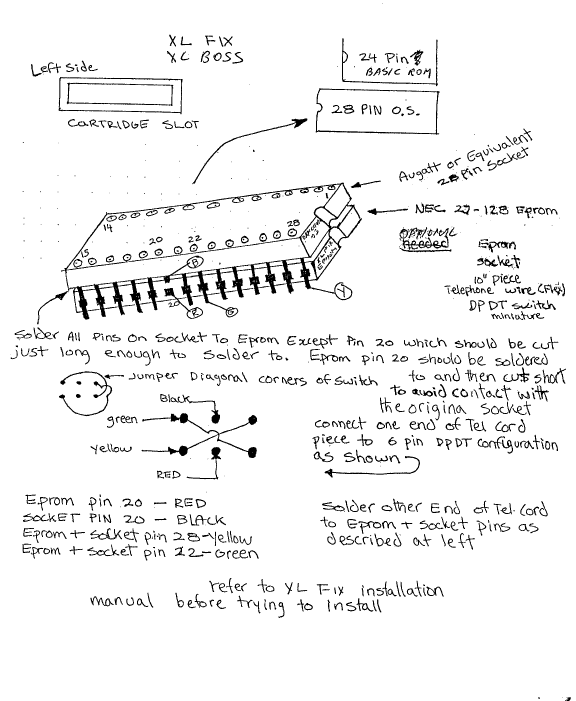 XL FIX
XL BOSS
Left Side
CARTRIDGE SLOT
24 Pin
BASIC ROM
28 PIN O.S.
Augatt or Equivalent
28 Pin Socket
NEC 27-128 Eprom
OPTIONAL
Needed
Eprom
Socket
10" piece
Telephone wire (Flex)
DPDT switch
miniature
1
14
15
20
22
28
B
20
R
G
Y
Solder All Pins On Socket To Eprom Except Pin 20 which should be cut
just long enough to solder to. Eprom pin 20 should be soldered
to and then cut short
to avoid contact with
the origina socket
Jumper Diagonal corners of switch
Black
green
yellow
RED
connect one end of Tel Cord
piece to 6 pin DPDT configuration
as shown
Eprom pin 20 - RED
SOCKET PIN 20 - BLACK
Eprom + socket pin 28-Yellow
Eprom + socket pin 22-Green
Solder other End of Tel. Cord
to Eprom + socket pins as
described at left
refer to XL FIX installation
manual before trying to install